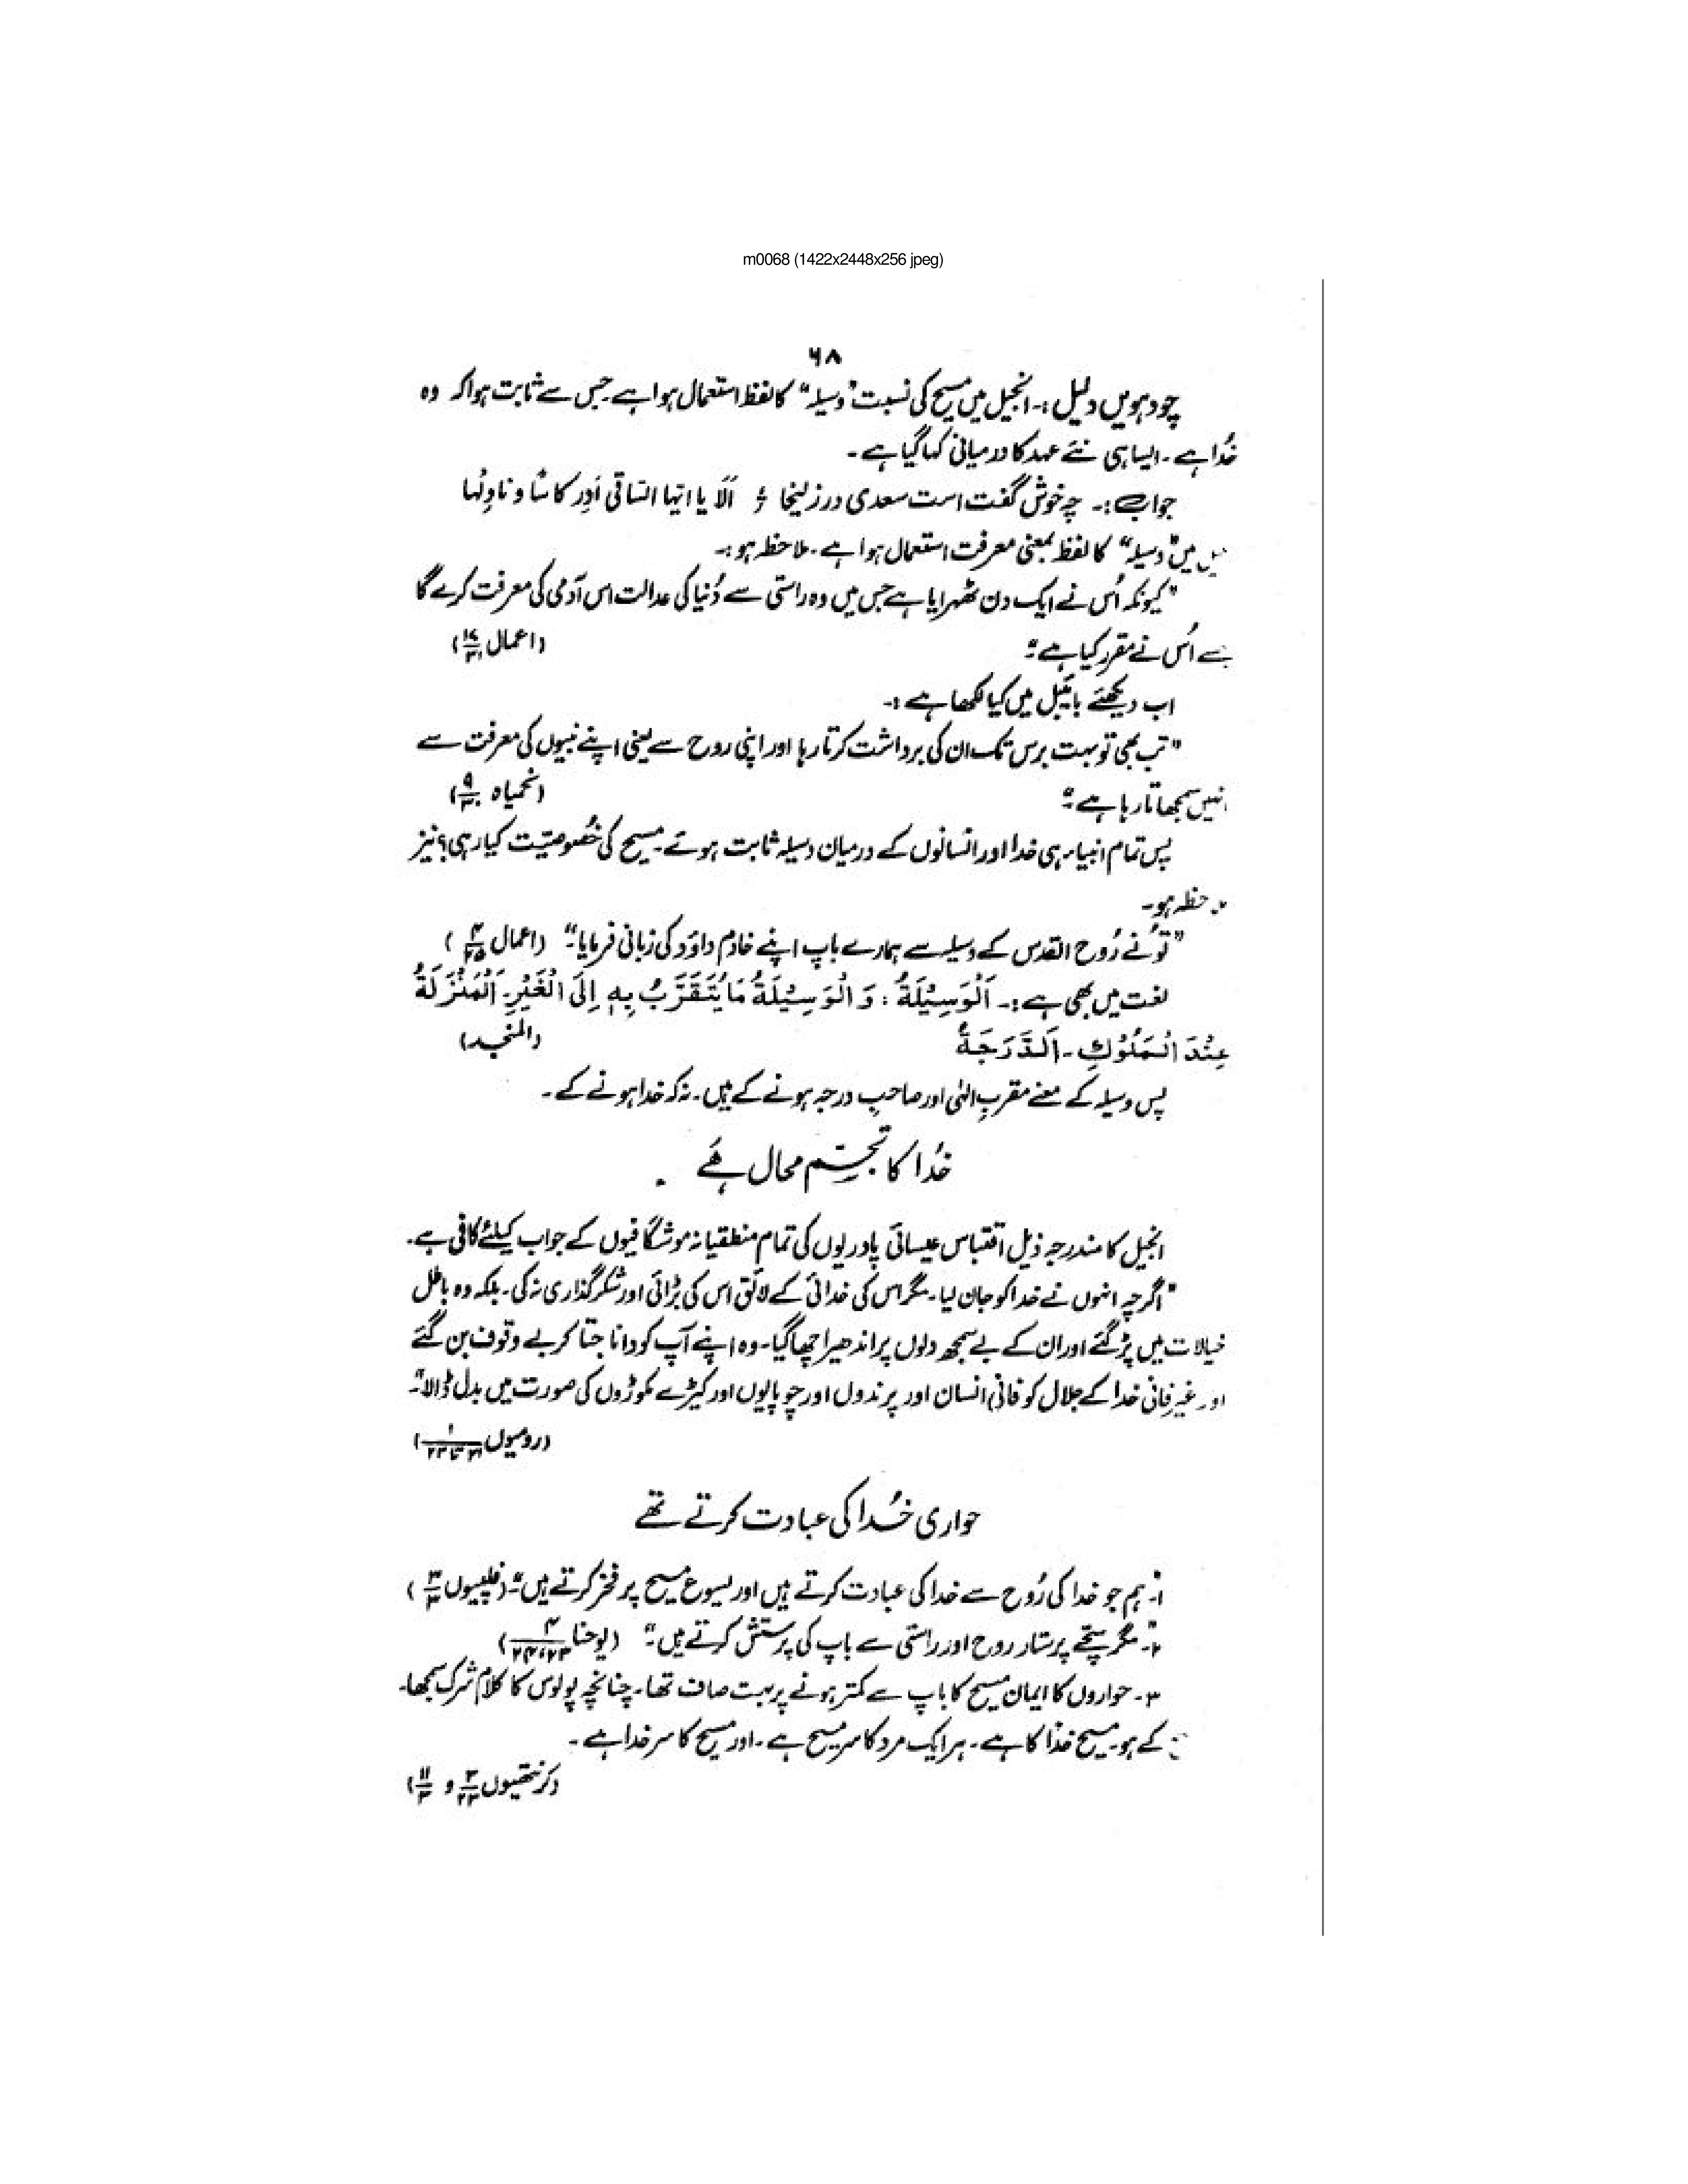 m0068 (1422x2448x256 jpeg)
۶۸
چودہویں دلیل :۔ انجیل میں مسیح کی نسبت "وسیلہ" کا لفظ استعمال ہوا ہے جس سے ثابت ہوا کہ وہ
خُدا ہے ۔ ایسا ہی نئے عہد کا درمیانی کہا گیا ہے ۔
جواب :۔ چہ خوش گفت است سعدی در زلیخا ؏ اَلَا یا ایّہا السّاقی اَدِر کاسًا و ناوِلہا
میں "وسیلہ" کا لفظ بمعنی معرفت استعمال ہوا ہے ۔ ملاحظہ ہو :۔
"کیونکہ اُس نے ایک دن ٹھہرایا ہے جس میں وہ راستی سے دُنیا کی عدالت اس آدمی کی معرفت کرے گا
جسے اُس نے مقرر کیا ہے ؛" (اعمال ۱۷/۳۱)
اب دیکھئے بائیبل میں کیا لکھا ہے :۔
"تب بھی تو بہت برس تک ان کی برداشت کرتا رہا اور اپنی روح سے یعنی اپنے نبیوں کی معرفت سے
انہیں سمجھاتا رہا ہے ؛" (نحمیاہ ۹/۳۰)
پس تمام انبیاء ہی خدا اور انسانوں کے درمیان وسیلہ ثابت ہوئے ۔ مسیح کی خُصوصیّت کیا رہی؟ نیز
ملاحظہ ہو ۔
"تُو نے رُوح القدس کے وسیلے سے ہمارے باپ اپنے خادم داؤد کی زبانی فرمایا ؛" (اعمال ۴/۲۵)
لغت میں بھی ہے :۔ اَلْوَسِیْلَةُ : وَ الْوَسِیْلَةُ مَا یُتَقَرَّبُ بِہٖ اِلَی الْغَیْرِ ۔ اَلْمَنْزَلَةُ
عِنْدَ الْمَلُوْكِ ۔ اَلدَّرَجَةُ (المنجد)
پس وسیلہ کے معنے مقربِ الٰہی اور صاحبِ درجہ ہونے کے ہیں ۔ نہ کہ خدا ہونے کے ۔
خُدا کا تجسّم محال ہَے
انجیل کا مندرجہ ذیل اقتباس عیسائی پادریوں کی تمام منطقیانہ موشگافیوں کے جواب کیلئے کافی ہے ۔
"اگرچہ انہوں نے خدا کو جان لیا ۔ مگر اس کی خدائی کے لائق اس کی بڑائی اور شکر گذاری نہ کی ۔ بلکہ وہ باطل
خیالات میں پڑ گئے اور ان کے بے سمجھ دلوں پر اندھیرا چھا گیا ۔ وہ اپنے آپ کو دانا جتا کر بے وقوف بن گئے
اور غیر فانی خدا کے جلال کو فانی انسان اور پرندوں اور چوپایوں اور کیڑے مکوڑوں کی صورت میں بدل ڈالا ؛"
(رومیوں ۱/۲۱ تا ۲۳)
حواری خُدا کی عبادت کرتے تھے
۱۔ "ہم جو خدا کی رُوح سے خدا کی عبادت کرتے ہیں اور یسوع مسیح پر فخر کرتے ہیں ؛" (فلپیوں ۳/۳)
۲۔ "مگر سچّے پرستار روح اور راستی سے باپ کی پرستش کرتے ہیں ؛" (یوحنا ۴/۲۳،۲۴)
۳۔ حواروں کا ایمان مسیح کا باپ سے کمتر ہونے پر بہت صاف تھا ۔ چنانچہ پولوس کا کلام شرک سمجھا ۔
کے ہو مسیح خدا کا ہے ۔ ہر ایک مرد کا سر مسیح ہے ۔ اور مسیح کا سر خدا ہے ۔
(کرنتھیوں ۳/۲۳ و ۱۱/۳)